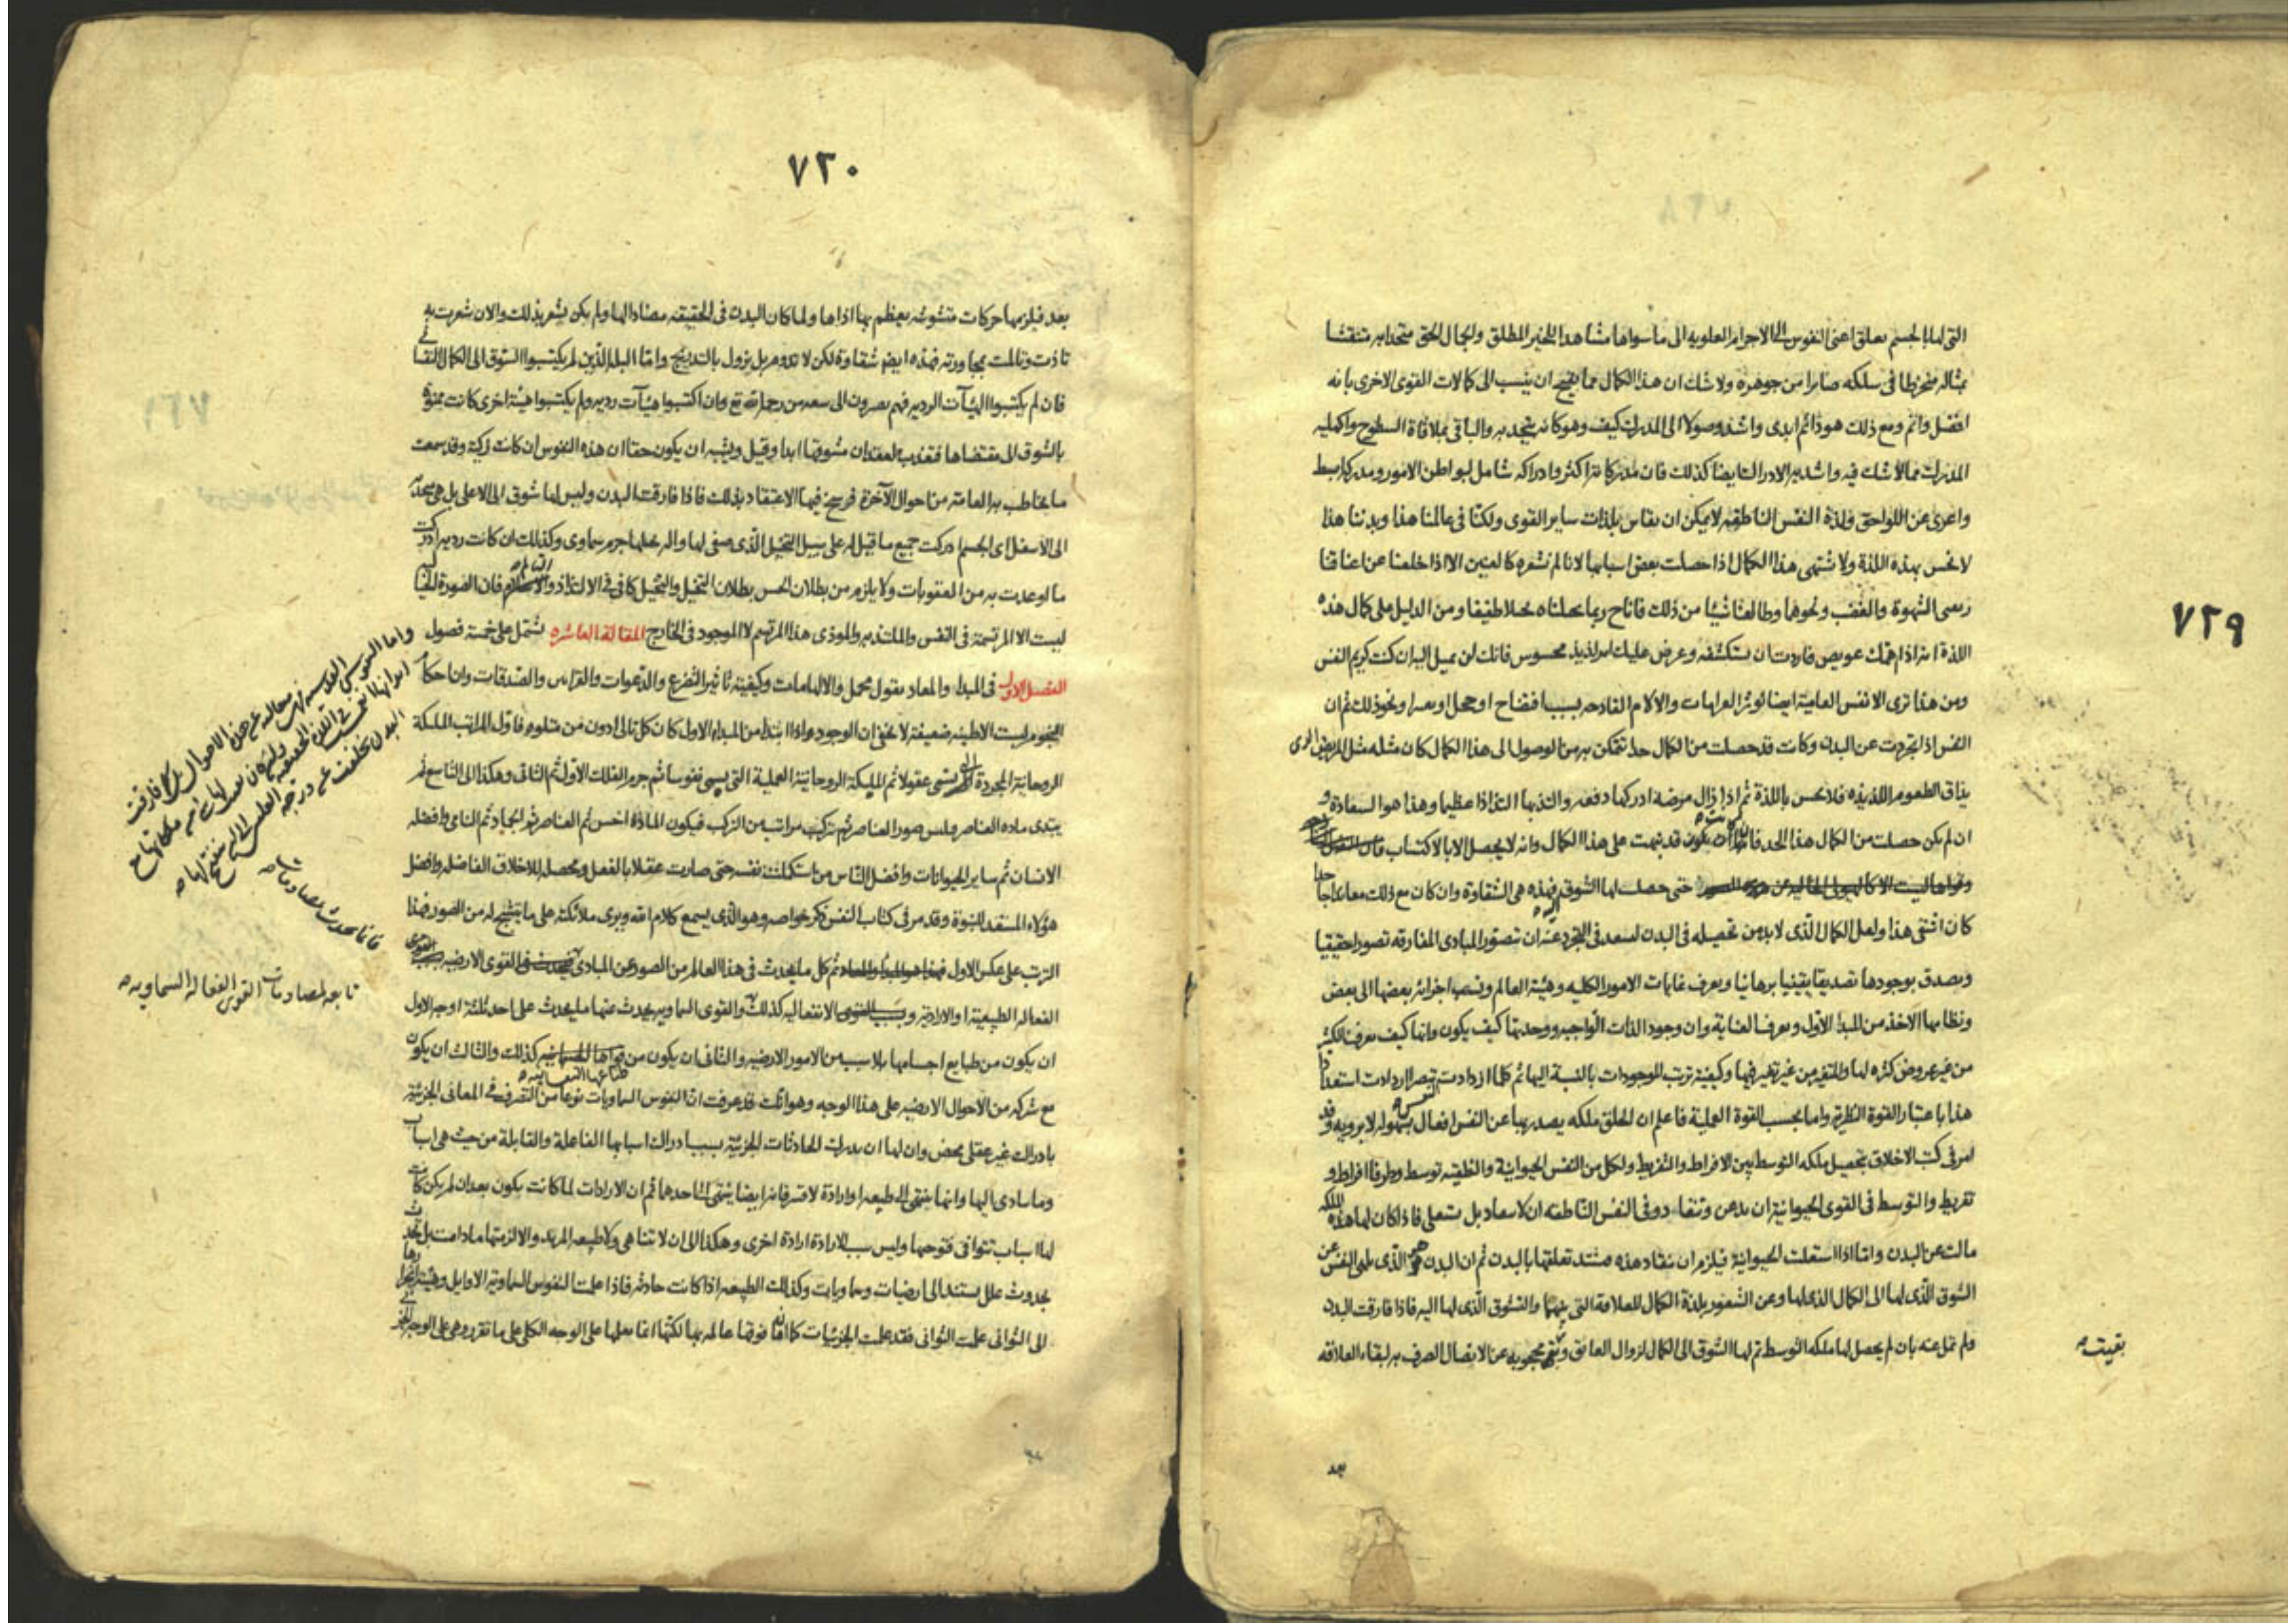 ٧٢٩
التى لها بالجسم تعلق اعنى النفوس الاجرام العلويه الى ما سواها مشاهدا للخير المطلق والجمال الحق متحدا به منتقشا
بمثاله منخرطا فى سلكه صايرا من جوهره ولا شك ان هذا الكمال مما يقبح ان ينسب الى كمالات القوى الاخرى بانه
افضل واتم ومع ذلك هو دائم ابدى واشد وصولا الى المدرك كيف وهو كانه يتحد به والباقى بملاقاة السطوح واكمليه
المدرك مما لا شك فيه واشديه الادراك ايضا كذلك فان مدركاته اكثر وادراكه شامل لبواطن الامور ومدركه ابسط
واعرى عن اللواحق ولذة النفس الناطقه لا يمكن ان يقاس بلذات ساير القوى ولكنا فى عالمنا هذا وبدننا هذا
لا نحس بهذه اللذة ولا نشتهى هذا الكمال اذا حصلت بعض اسبابها لانا لم نشعره كالعنين الا اذا خلعنا عن اعناقنا
ربقى الشهوة والغضب ونحوها وطالعنا شيئا من ذلك فاناح ربما تخيلناه خيالا طفيفا ومن الدليل على كمال هذه
اللذة انه اذا همك عويص فاردت ان تستكشفه وعرض عليك امر لذيذ محسوس فانك لن تميل اليه ان كنت كريم النفس
ومن هذا ترى الانفس العاميه ايضا تؤثر الغرامات والآلام الفادحه بسبب افتضاح او خجل او ونحو ذلك ثم ان
النفس اذا تجردت عن البدن وكانت قد حصلت من الكمال حدا تتمكن به من الوصول الى هذا الكمال كان مثله مثل المريض الذى
يذاق الطعوم اللذيذه فلا يحس باللذة ثم اذا زال مرضه ادركها دفعه والتذ بها التذاذا عظيما وهذا هو السعادة و
ان لم يكن حصلت من الكمال هذا الحد فاما ان يكون قد تنبهت على هذا الكمال وانه لا يحصل الا بالاكتساب
حتى حصل لها الشوق اليه فهذه هى الشقاوة وان كان مع ذلك معاندا جاحدا
كان اشقى هذا ولعل الكمال الذى لا بد من تحصيله فى البدن ليسعد فى التجرد عنه ان تصور المبادى المفارقه تصورا حقيقيا
ويصدق بوجودها تصديقا يقينيا برهانيا ويعرف غايات الامور الكليه وهيئة العالم ونسب اجزائه بعضها الى بعض
ونظامها الاخذ من المبدأ الاول ويعرف العناية وان وجود الذات الواجبه ووحدتها كيف يكون وانها كيف يعرف الكثير
من غير عروض كثره لها والمتغير من غير تغير فيها وكيفية ترتب الموجودات بالنسبة اليها ثم كلما ازدادت تبصرا زادت استعدادا
هذا باعتبار القوة النظرية واما بحسب القوة العملية فاعلم ان الخلق ملكه يصدر بها عن النفس افعال بسهوله لا برويه وقد
امر فى كتب الاخلاق بتحصيل ملكه التوسط بين الافراط والتفريط ولكل من النفس الحيوانية والنطقيه توسط وطرفا افراط و
تفريط والتوسط فى القوى الحيوانية ان تذعن وتنقاد وفى النفس الناطقه ان لا تنقاد بل تستعلى فاذا كان لها هذه الملكه
مالت عن البدن واما اذا استعلت الحيوانية فيلزم ان تنقاد هذه فتشتد تعلقها بالبدن ثم ان البدن هو الذى يلهى النفس عن
الشوق الذى لها الى الكمال الذى لها وعن الشعور بلذة الكمال للعلاقة التى بينهما والشوق الذى لها اليه فاذا فارقت البدن
ولم تمل عنه بان لم يحصل لها ملكه التوسط تم لها الشوق الى الكمال لزوال العائق وبقى محجوبه عن الاتصال الصرف به لبقاء العلاقه
بقيت
بعد
٧٢٠
بعد فيلزمها حركات مشوشه يعظم بها اذاها ولما كان البدن فى الحقيقه مضادا لها ولم يكن يشعر بذلك والان شعرت به
تاذت وتالمت بمجاورته فهذه ايضا شقاوة لكن لا تدوم بل يزول بالتدريج واما البله الذين لم يكتسبوا الشوق الى الكمال
فان لم يكتسبوا الهيآت الرديه فهم يصيرون الى سعه من رحمة الله تع وان اكتسبوا هيآت رديه ولم يكتسبوا هيئة اخرى كانت ممنوة
بالشوق الى مقتضاها فتعذب لفقدان مشوقها ابدا وقيل ويشبه ان يكون حقا ان هذه النفوس ان كانت زكية وقد سمعت
ما يخاطب به العامة من احوال الآخرة فرسخ فيها الاعتقاد بذلك فاذا فارقت البدن وليس لها شوق الى الاعلى بل هى منجذبة
الى الاسفل اى الجسم ادركت جميع ما قيل له على سبيل التخيل الذى صفى لها والة تخيلها جرم سماوى وكذلك ان كانت رديه ادركت
ما اوعدت به من العقوبات ولا يلزم من بطلان الحس بطلان التخيل والتخيل كافى فى الالتذاذ والتالم فان الصورة
ليست الا المرتسمة فى النفس والملتذ به والموذى هذا المرتسم لا الموجود فى الخارج المقالة العاشره يشتمل على خمسة فصول
الفصل الاول فى المبدا والمعاد بقول مجمل والالهامات وكيفية تاثير التضرع والدعوات والقرابين والصدقات وان احكام
النجوم ليست الا ظنيه ضعيفة لا يخفى ان الوجود اذا ابتدا من المبداء الاول كان كل تالى ادون من متلوه فاول المراتب الملئكة
الروحانية المجردة التى تسمى عقولا ثم المليكة الروحانية العملية التى يسمى نفوسا ثم جرم الفلك الاول ثم الثانى وهكذا الى التاسع ثم
يبتدى ماده العناصر فيلبس صور العناصر ثم تتركب مراتب من التركب فيكون المادة اخس ثم العناصر ثم الجماد ثم النامى وافضله
الانسان ثم ساير الحيوانات وافضل الناس من استكملت نفسه حتى صارت عقلا بالفعل ومحصلا للاخلاق الفاضله وافضل
هؤلاء المستعد للنبوة وقد مر فى كتاب النفس ذكر خواصه وهو الذى يسمع كلام الله ويرى ملائكته على ما يتشبح له من الصور فهذا
الترتب على عكس الاول ثم كل ما يحدث فى هذا العالم من الصور عن المبادى القوى الارضيه
الفعالة الطبيعية او الارادية الانفعاليه كذلك والقوى السماويه يحدث عنها ما يحدث على احد ثلثة اوجه الاول
ان يكون من طبايع اجسامها بلا سبب من الامور الارضيه والثانى ان يكون من طباعها النفسانيه كذلك والثالث ان يكون
مع شركه من الاحوال الارضيه على هذا الوجه وهو انك قد عرفت ان النفوس السماويات نوعا من التصرف فى المعانى الجزئية
بادراك غير عقلى محض وان لها ان يدرك الحادثات الجزئية بسبب ادراك اسبابها الفاعلة والقابلة من حيث هى اسباب
وما يتادى اليها وانها ينتهى الى طبيعه او ارادة لا قسر فانه ايضا ينتهى الى احدهما ثم ان الارادات لما كانت يكون بعد ان لم يكن كانت
لها اسباب تتوافى فتوجبها وليس سبب الارادة ارادة اخرى وهكذا الى ان لا تتناهى ولا طبيعه المريد والا لزمتها ما دامت بل تحدث
بحدوث علل يستند الى ارضيات وسماويات وكذلك الطبيعه اذا كانت حادثه فاذا علمت النفوس السماوية الاوايل وهيئة
الى الثوانى علمت الثوانى فقد علمت الجزئيات كما ان ما فوقها عالمه بها لكنها انما يعلمها على الوجه الكلى على ما تقرر وهى على الوجه الجزئى
تابعه لمصادمات القوى الفعاله السماويه